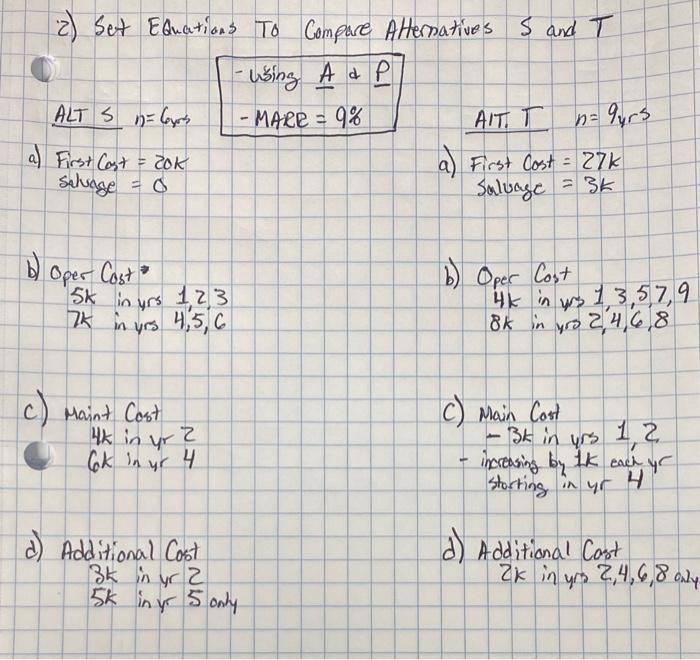 2) Set Equations To Compare Alternatives S and T
- Using A & P
- MARR = 9%
ALT S n= 6yrs
a) First Cost = 20K
Salvage = 0
b) Oper Cost
5K in yrs 1,2,3
7K in yrs 4,5,6
c) Maint Cost
4K in yr 2
6K in yr 4
d) Additional Cost
3K in yr 2
5K in yr 5 only
AlT. T n= 9yrs
a) First Cost = 27K
Salvage = 3K
b) Oper Cost
4K in yrs 1,3,5,7,9
8K in yrs 2,4,6,8
c) Main Cost
- 3K in yrs 1,2
- increasing by 1K each yr
starting in yr 4
d) Additional Cost
2K in yrs 2,4,6,8 only